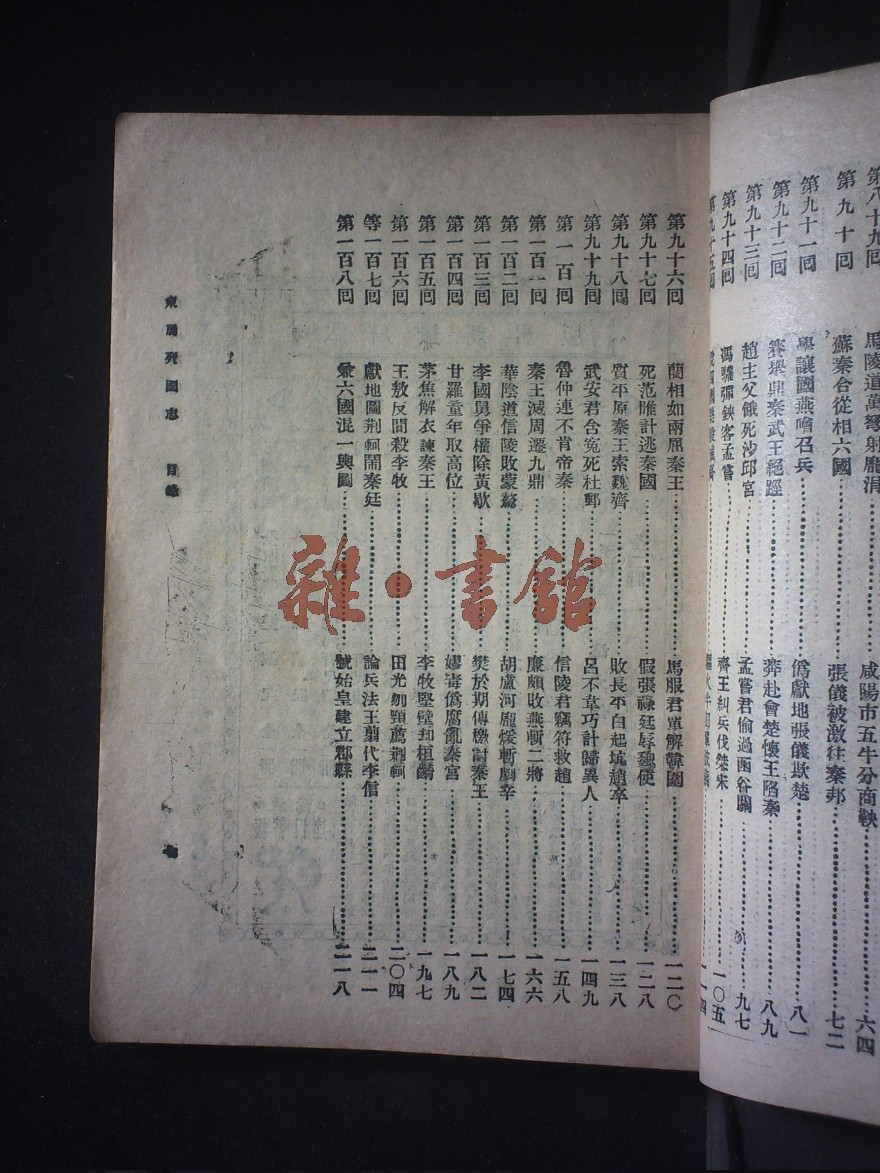 第八十九回 馬陵道萬弩射龐涓 咸陽市五牛分商鞅 六四
第九十回 蘇秦合從相六國 張儀被激往秦邦 七二
第九十一回 學讓國燕噲召兵 僞獻地張儀欺楚 八一
第九十二回 賽舉鼎秦武王絕脛 莽赴會楚懷王陷秦 八九
第九十三回 趙主父餓死沙邱宮 孟嘗君偷過函谷關 九七
第九十四回 馮驩彈鋏客孟嘗 齊王糾兵伐桀宋 一〇五
第九十五回
第九十六回 藺相如兩屈秦王 馬服君單解韓圍 一二〇
第九十七回 死范雎計逃秦國 假張祿廷辱魏使 一二八
第九十八回 質平原秦王索魏齊 敗長平白起坑趙卒 一三八
第九十九回 武安君含冤死杜郵 呂不韋巧計歸異人 一四九
第一百回 魯仲連不肯帝秦 信陵君竊符救趙 一五八
第一百一回 秦王滅周遷九鼎 廉頗敗燕斬二將 一六六
第一百二回 華陰道信陵敗蒙驁 胡盧河龐煖斬劇辛 一七四
第一百三回 李國舅爭權除黃歇 樊於期傳檄討秦王 一八二
第一百四回 甘羅童年取高位 嫪毐僞腐亂秦宮 一八九
第一百五回 茅焦解衣諫秦王 李牧堅壁却桓齮 一九七
第一百六回 王敖反間殺李牧 田光刎頸薦荆軻 二〇四
等一百七回 獻地圖荆軻鬧秦廷 論兵法王翦代李信 二一一
第一百八回 兼六國混一輿圖 號始皇建立郡縣 二一八
東周列國志 目錄
雜·書館